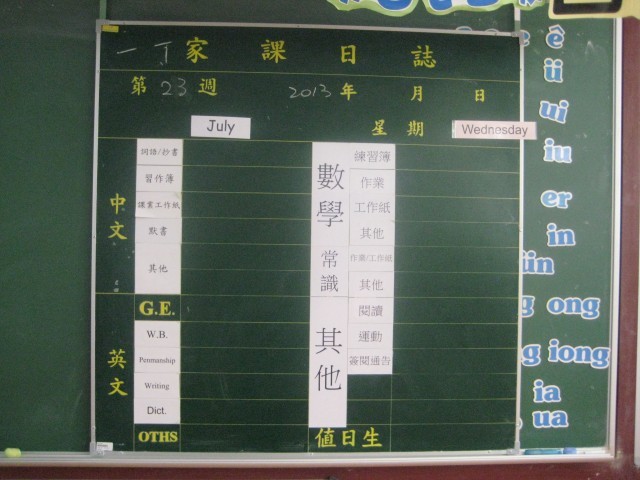 一丁家課日誌
第23週 2013年 月 日
July 星期 Wednesday
中文
詞語/抄書
習作簿
默書
其他
G.E.
英文
W.B.
Penmanship
Writing
Dict.
OTHS
數學
練習簿
作業
工作紙
其他
常識
作業/工作紙
其他
其他
閱讀
運動
簽閱通告
值日生
ê
ü
ui
iu
er
in
ong
iong
ia
ua